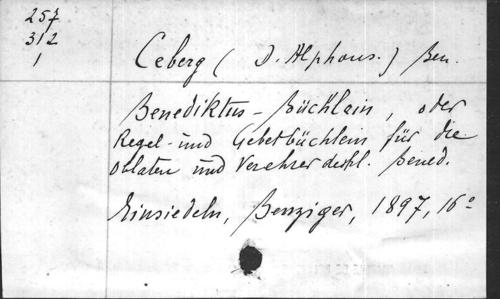 257
312
1
Ceberg (D. Alphons.) Ben.
Benediktus-Büchlein, oder
Regel- und Gebetbüchlein für die
Oblaten und Verehrer des hl. Bened.
Einsiedeln, Benziger, 1897, 16°